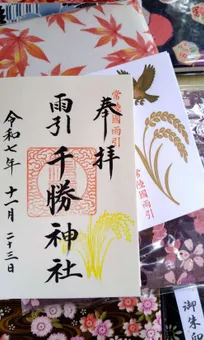 奉拝
常陸國雨引
雨引千勝神社
令和七年十一月二十三日
常陸國雨引
御朱印